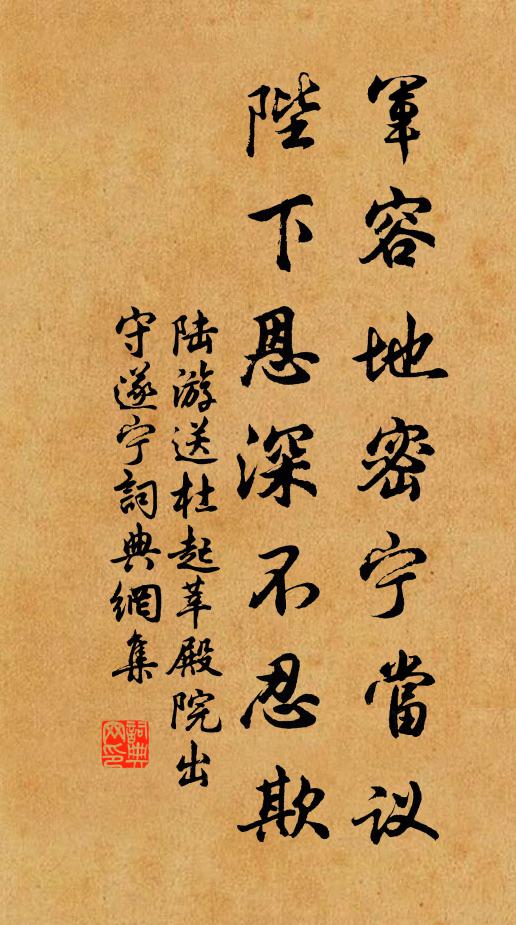 军容地密宁當议
陛下恩深不忍欺
陆游送杜起莘殿院出
守遂宁詞典網集
詞典
网印